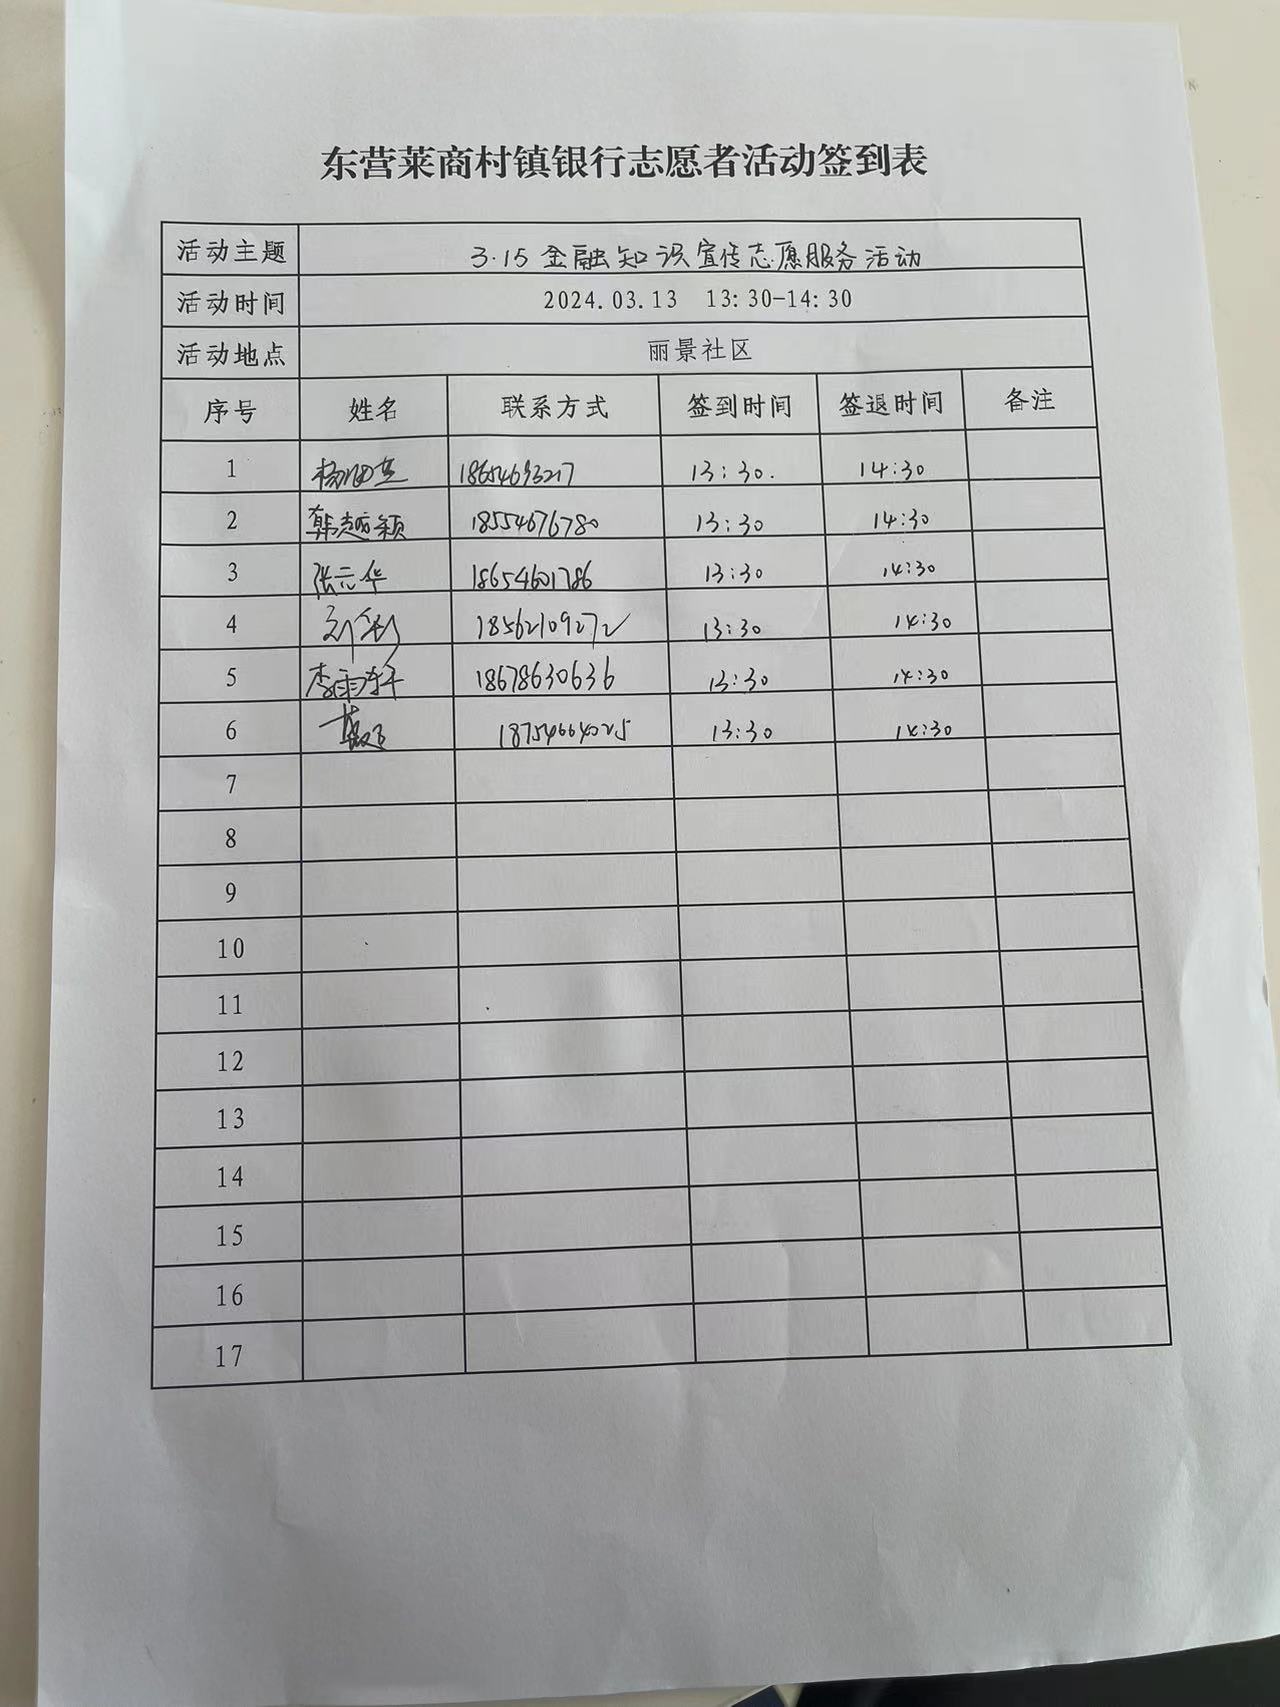 东营莱商村镇银行志愿者活动签到表
活动主题 3.15金融知识宣传志愿服务活动
活动时间 2024.03.13 13:30-14:30
活动地点 丽景社区
序号 姓名 联系方式 签到时间 签退时间 备注
1 18654693217 13:30. 14:30
2 韩越颖 18554676780 13:30 14:30
3 张元华 18654601786 13:30 14:30
4 18562109272 13:30 14:30
5 李雨轩 18678630636 13:30 14:30
6 18754664025 13:30 14:30
7
8
9
10
11
12
13
14
15
16
17